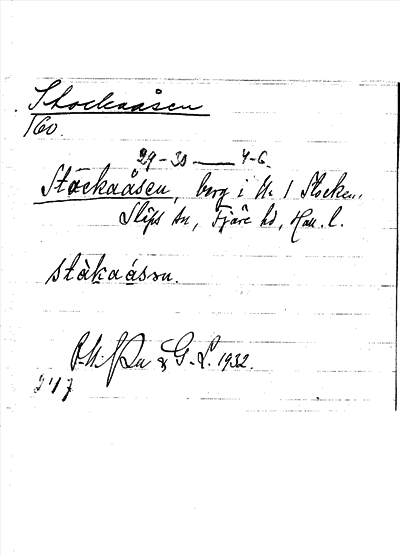 Stockaåsen
160.
29-30 — 4-6.
Stockaåsen, berg i N. 1 Stocken,
Släps sn, Fjäre hd, Hall. l.
ståkaåsən.
& G. L. 1932.
247